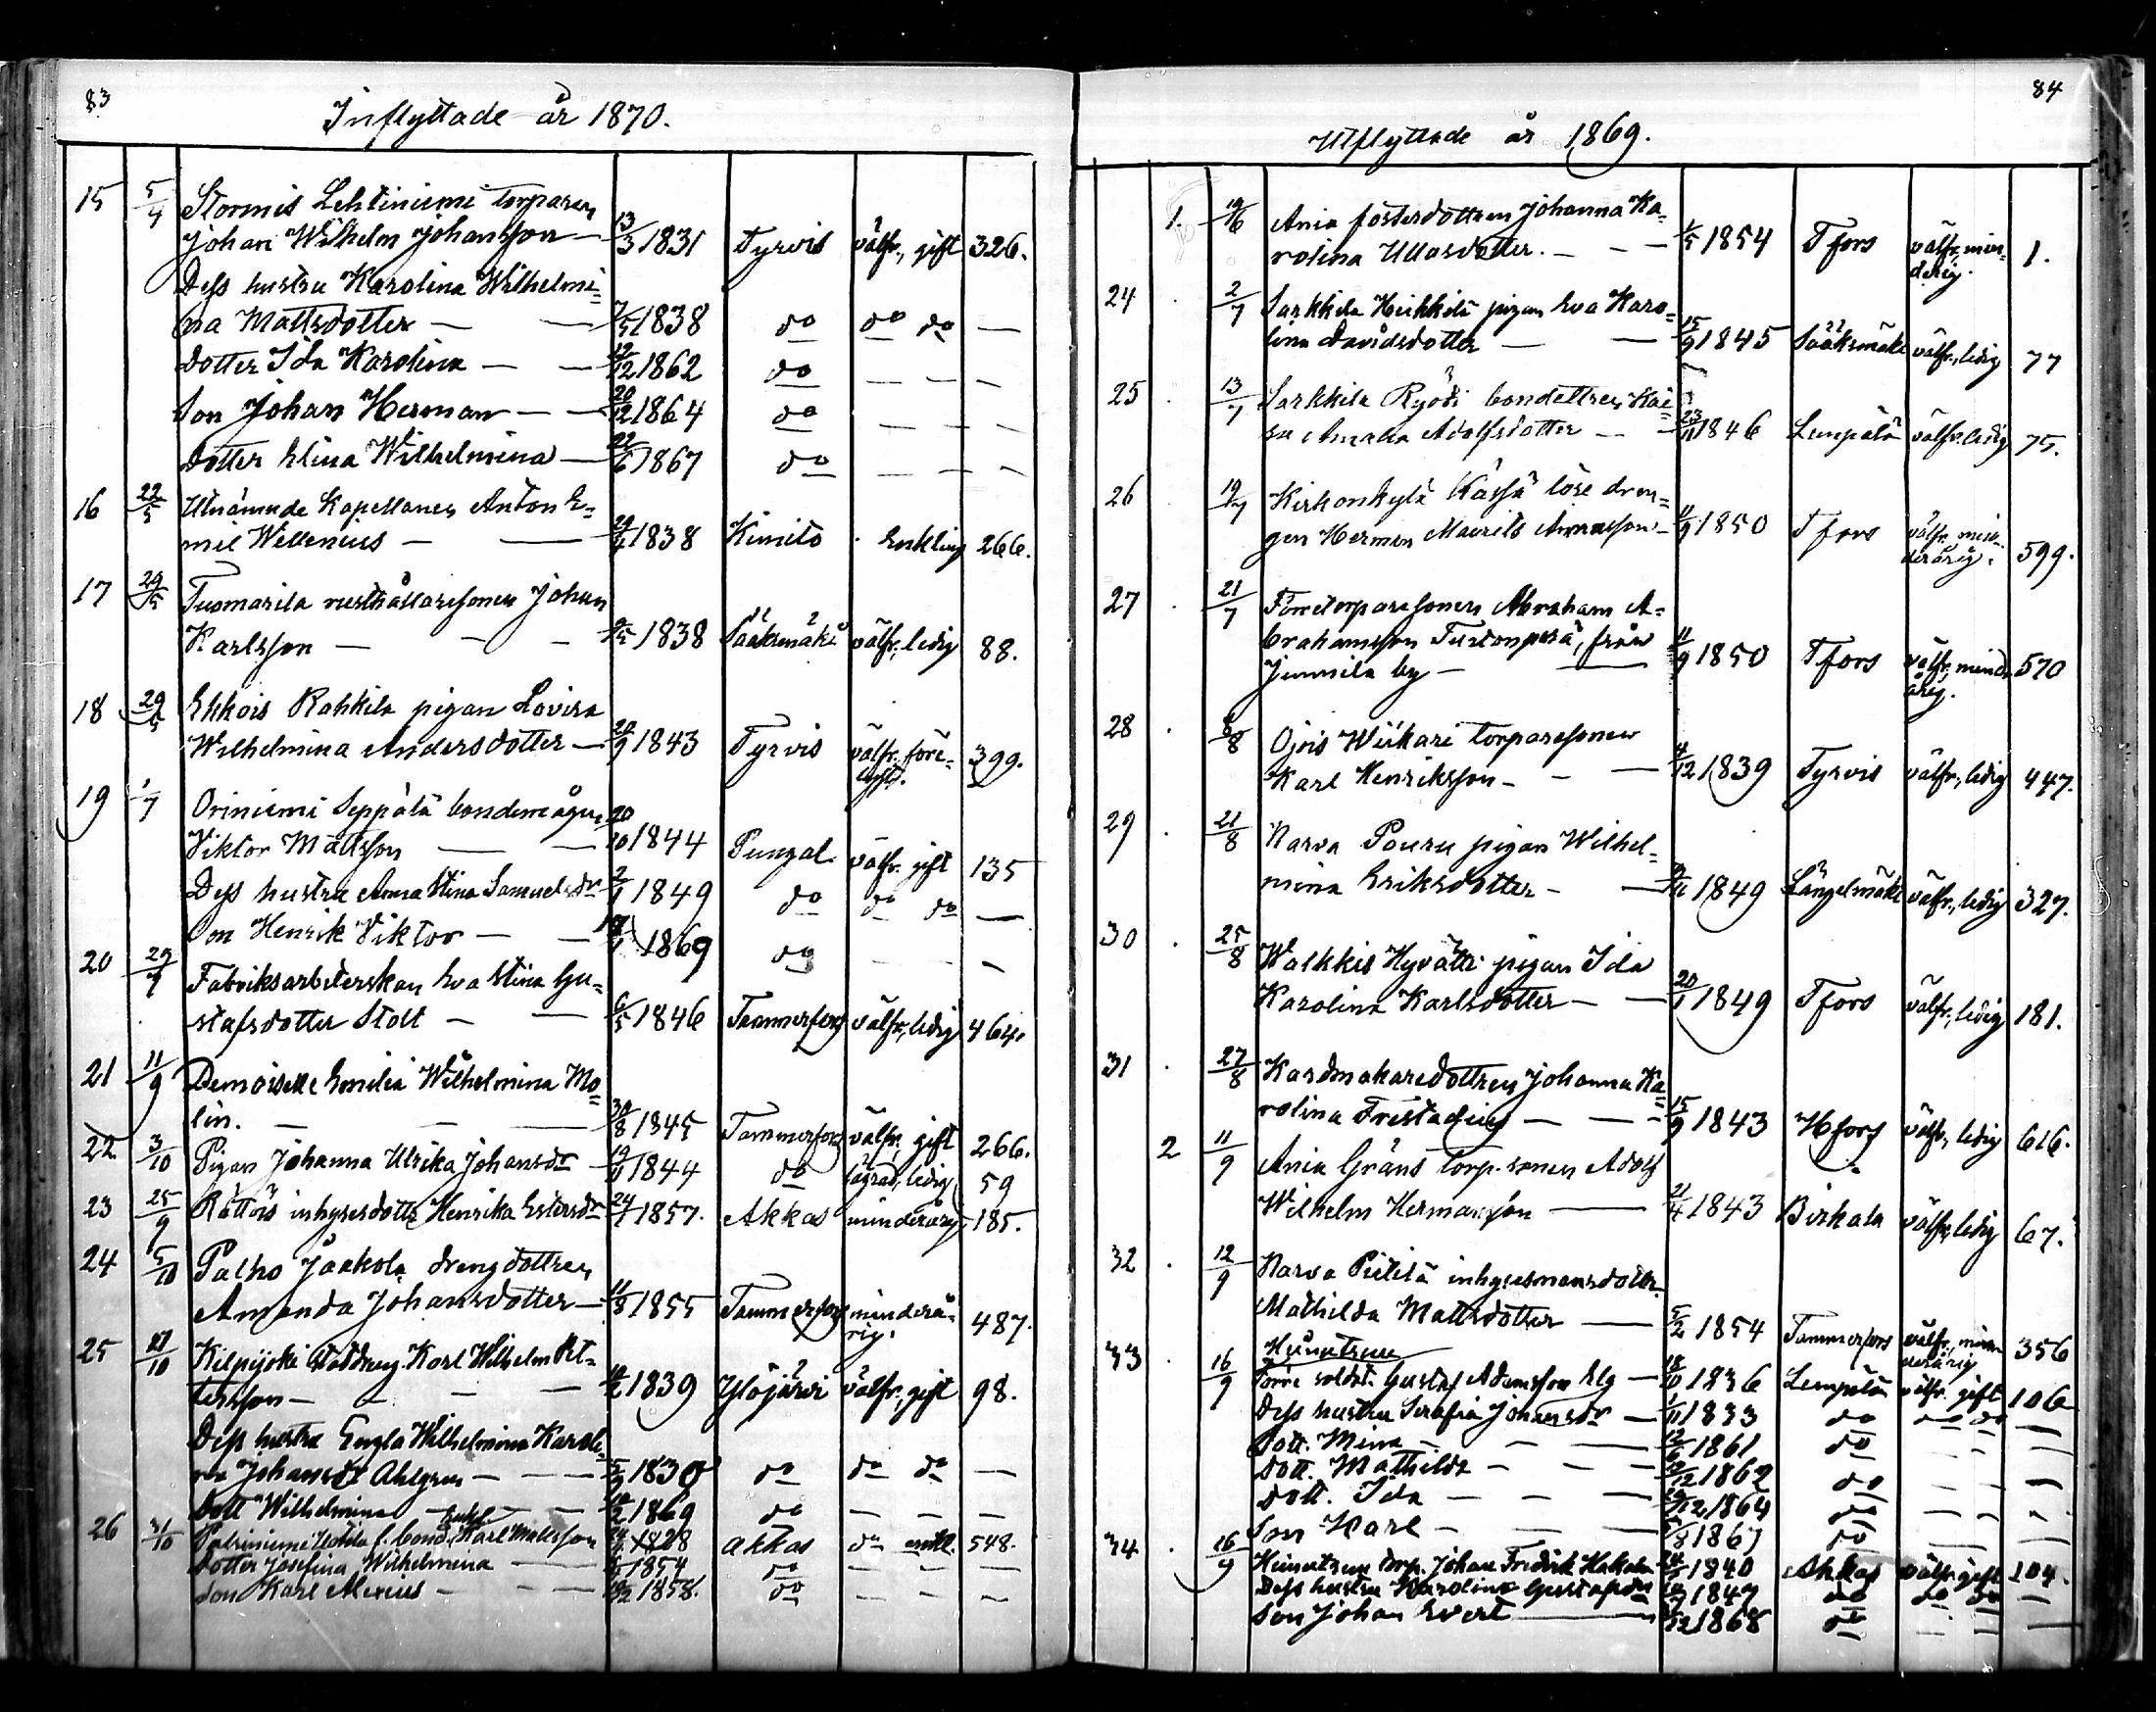 83
Inflyttade år 1870.
15 5/4 Stormis Lehtiniemi torparen
Johan Wilhelm Johansson — 13/3 1831 Tyrvis välfr., gift 326.
Dess hustru Karolina Wilhelmi=
na Mattsdotter — — 7/5 1838 do do do —
dotter Ida Karolina — — 19/12 1862 do — — —
Son Johan Herman — — 20/12 1864 do — — —
dotter Elina Wilhelmina — 22/6 1867 do — — —
16 22/5 Utnämnde Kapellanen Anton E=
mil Wellenius — — 1838 Kimito Enkling 266.
17 29/5 Tuomarila rusthållaresonen Johan
Karlsson — — 1838 Sääksmäki välfr., ledig 88.
18 29/5 Ehkois Rahkila pigan Lovisa
Wilhelmina Andersdotter — 20/9 1843 Tyrvis välfr. före=
lyst. 399.
19 1/7 Oriniemi Seppälä bondemågen
Viktor Mattsson — — 20/10 1844 Pungal. välfr. gift 135
Dess hustru Anna Stina Samuelsdr 2/1 1849 do do do —
Son Henrik Viktor — — 1869 do — —
20 Fabriksarbeterskan Eva Stina Gu=
stafsdotter Stolt — — 6/5 1846 Tammerfors välfr., ledig 464.
21 11/9 Demoiselle Emilia Wilhelmina Mo=
lin. — — 30/8 1845 Tammerfors välfr., gift 266.
22 3/10 Pigan Johanna Ulrika Johansdr — 1844 do lägrad, ledig 59
23 25/9 Rättöis inhysesdottr Henrika Estersdr 1857. Akkas minderårig 185.
24 5/10 Palho Jaakola drengdottren
Amanda Johansdotter — 11/8 1855 Tammerfors minderå=
rig. 487.
25 Kilpijoki statdreng Karl Wilhelm Pet=
tersson — — 1839 Ylöjärvi välfr., gift 98.
Dess hustru Engla Wilhelmina Karoli
na Johansdr Ahlgren — — 1830 do do do —
Dott Wilhelmina — — 1869 do — — —
26 31/10 f. bond. Karl Mattsson 1828 Akkas do enkl. 548.
Dotter Josefina Wilhelmina — 1854 do — — —
Son Karl Alexius — — 1858. do — — —
84
Utflyttade år 1869.
1. 19/6 Ania fosterdottren Johanna Ka=
rolina Ullasdotter. — — 1/5 1854 Tfors välfr, min=
derig. 1.
24 2/7 Sarkkila Heikkilä pigan Eva Karo=
lina Davidsdotter — — 15/9 1845 Sääksmäki välfr., ledig 77
25 13/7 Sarkkila Ryödi bondottren Kai=
sa Amalia Adolfsdotter — — 23/11 1846 Lempälä välfr. ledig 75.
26 19/7 Kirkonkylä Kässä löse dren=
gen Herman Mauritz Annasson — 1850 Tfors välfr, min=
derårig. 599.
27 21/7 Förre torparesonen Abraham A=
brahamsson Turtonperä, från
Junnila by — — 11/9 1850 Tfors välfr, mind
årig. 570
28 8/8 Ojois Wiikari torparesonen
Karl Henriksson — — 4/12 1839 Tyrvis välfr., ledig 447.
29 21/8 Narva Pouru pigan Wilhel=
mina Eriksdotter — — 1849 Längelmäki välfr., ledig 327.
30 25/8 Walkkis Hyvätti pigan Ida
Karolina Karlsdotter — — 20/1 1849 Tfors välfr., ledig 181.
31 27/8 Kardmakaredottren Johanna Ka=
rolina Frestadius — — 15/9 1843 Hfors välfr., ledig 616.
2 11/9 Ania Gräns torp.sonen Adolf
Wilhelm Hermansson — 21/4 1843 Birkala välfr, ledig 67.
32 12/9 Narva Piitilä inhysesmansdottr
Mathilda Mattsdotter — 5/2 1854 Tammerfors välfr., min=
derårig 356
33 16/9 Förre soldat. Gustaf Adamsson Elg — 18/10 1836 Lempälä välfr. gift 106
Dess hustru Serafia Johansdr — 1833 do do do —
Dott. Mina — — 12/6 1861 do — — —
Dott. Mathilda — — 1862 do — — —
Dott. Ida — — 1864 do — — —
Son Karl — — 1867 do — — —
34 16/9 torp. Johan Fredrik 1840 Akkas välfr. gift 104.
Dess hustru Karolina Gustafsdr 1847 do do do —
Son Johan Evert — 1868 do — — —